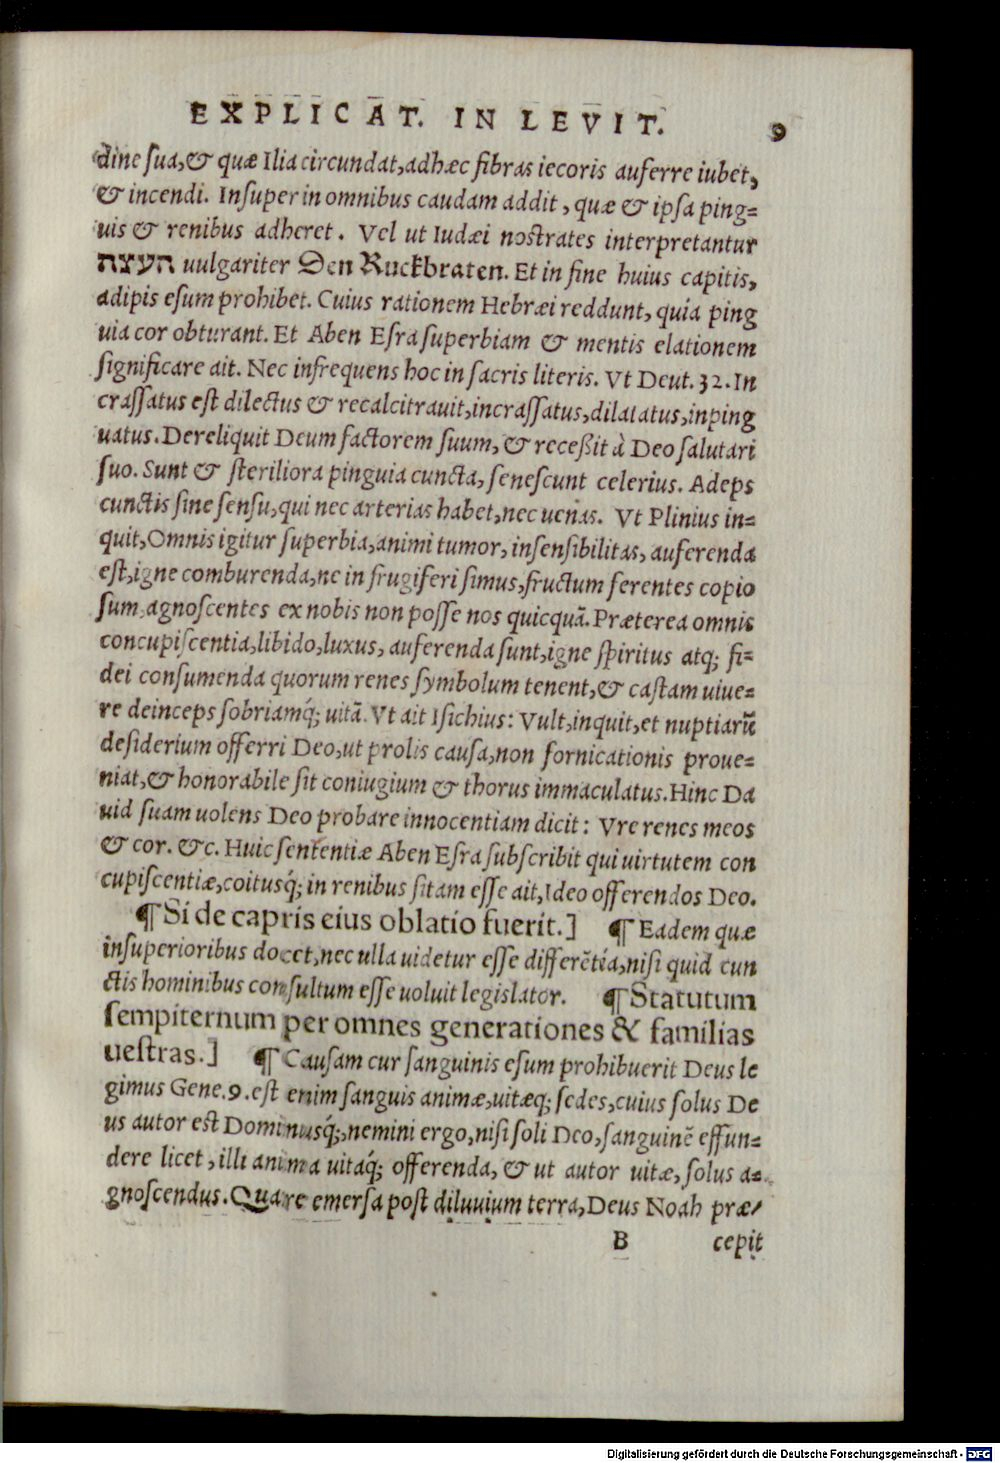 EXPLICAT. IN LEVIT. 9
dine sua, & quæ Ilia circundat, adhæc fibras iecoris auferre iubet,
& incendi. Insuper in omnibus caudam addit, quæ & ipsa ping=
uis & renibus adheret. Vel ut Iudæi nostrates interpretantur
העצה uulgariter Den Ruckbraten. Et in fine huius capitis,
adipis esum prohibet. Cuius rationem Hebræi reddunt, quia ping
uia cor obturant. Et Aben Esra superbiam & mentis elationem
significare ait. Nec infrequens hoc in sacris literis. Vt Deut. 32. In
crassatus est dilectus & recalcitrauit, incrassatus, dilatatus, inping
uatus. Dereliquit Deum factorem suum, & receßit à Deo salutari
suo. Sunt & steriliora pinguia cuncta, senescunt celerius. Adeps
cunctis sine sensu, qui nec arterias habet, nec uenas. Vt Plinius in=
quit, Omnis igitur superbia, animi tumor, insensibilitas, auferenda
est, igne comburenda, ne in frugiferi simus, fructum ferentes copio
sum, agnoscentes ex nobis non posse nos quicquã. Præterea omnis
concupiscentia, libido, luxus, auferenda sunt, igne spiritus atq; fi=
dei consumenda quorum renes symbolum tenent, & castam uiue=
re deinceps sobriamq́; uitã. Vt ait Isichius: Vult, inquit, et nuptiarũ
desiderium offerri Deo, ut prolis causa, non fornicationis proue=
niat, & honorabile sit coniugium & thorus immaculatus. Hinc Da
uid suam uolens Deo probare innocentiam dicit: Vre renes meos
& cor. &c. Huic sententiæ Aben Esra subscribit qui uirtutem con
cupiscentiæ, coitusq́; in renibus sitam esse ait, Ideo offerendos Deo.
¶ Si de capris eius oblatio fuerit.] ¶ Eadem quæ
insuperioribus docet, nec ulla uidetur esse differẽtia, nisi quid cun
ctis hominibus consultum esse uoluit legislator. ¶ Statutum
sempiternum per omnes generationes & familias
uestras.] ¶ Causam cur sanguinis esum prohibuerit Deus le
gimus Gene. 9. est enim sanguis animæ, uitæq; sedes, cuius solus De
us autor est Dominusq́;, nemini ergo, nisi soli Deo, sanguinẽ effun=
dere licet, illi anima uitaq́; offerenda, & ut autor uitæ, solus a=
gnoscendus. Quare emersa post diluuium terra, Deus Noah præ/
B cepit
Digitalisierung gefördert durch die Deutsche Forschungsgemeinschaft - DFG